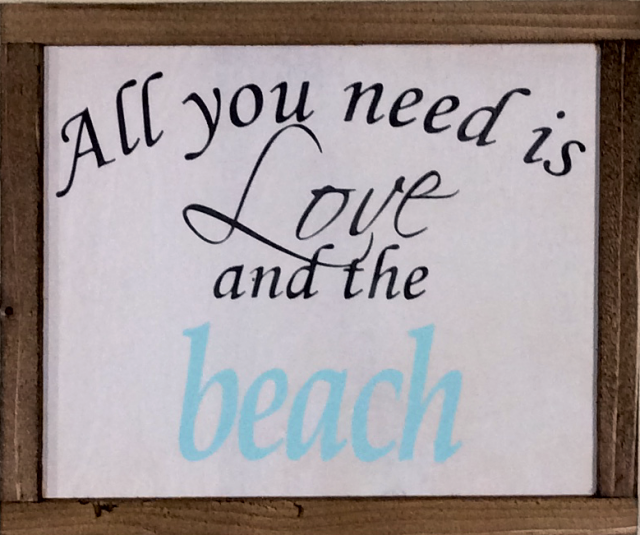 All you need is
Love
and the
beach